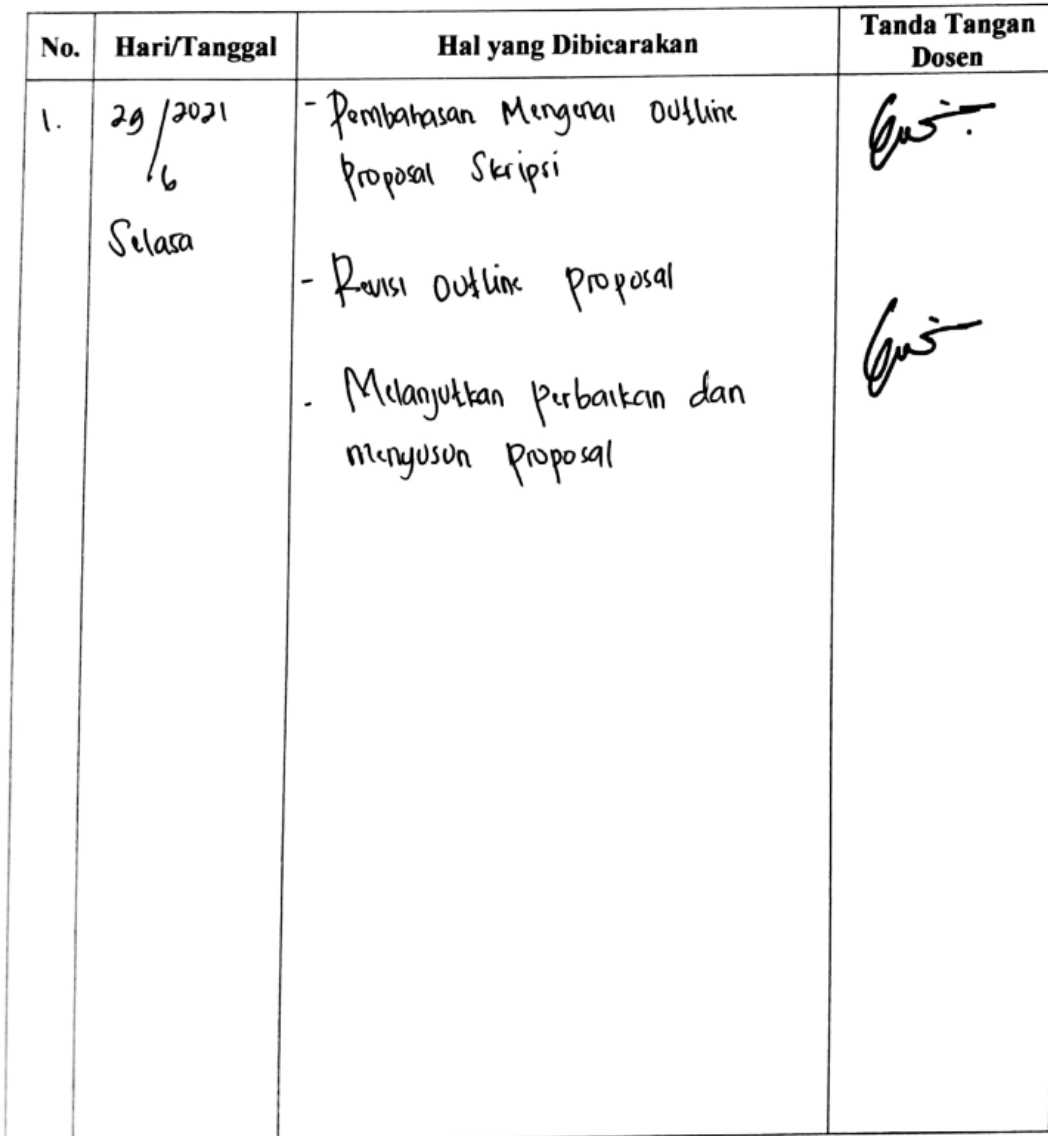 No. Hari/Tanggal Hal yang Dibicarakan Tanda Tangan Dosen
1. 29/6 2021 - Pembahasan Mengenai Outline
Proposal Skripsi
Selasa
- Revisi Outline Proposal
- Melanjutkan Perbaikan dan
menyusun Proposal